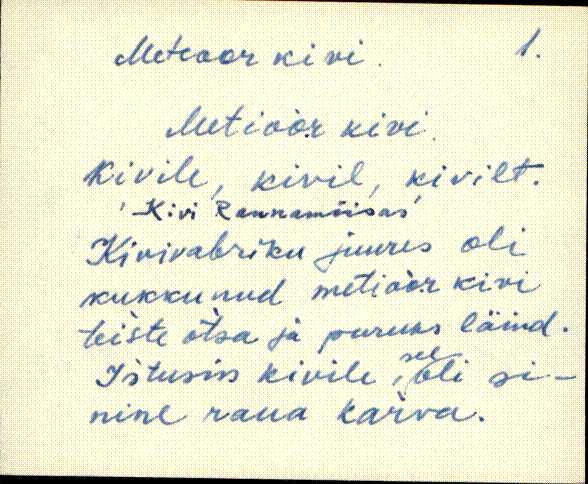 Meteoor kivi. 1.
Metioòr kivi.
Kivile, kivil, kivilt.
'Kivi Rannamõisas'
Kivivabriku juures oli
kukkunud metioòr kivi
teìste òtsa ja puruks läind.
Istusin kivile, sel oli si-
nine raua kàrva.